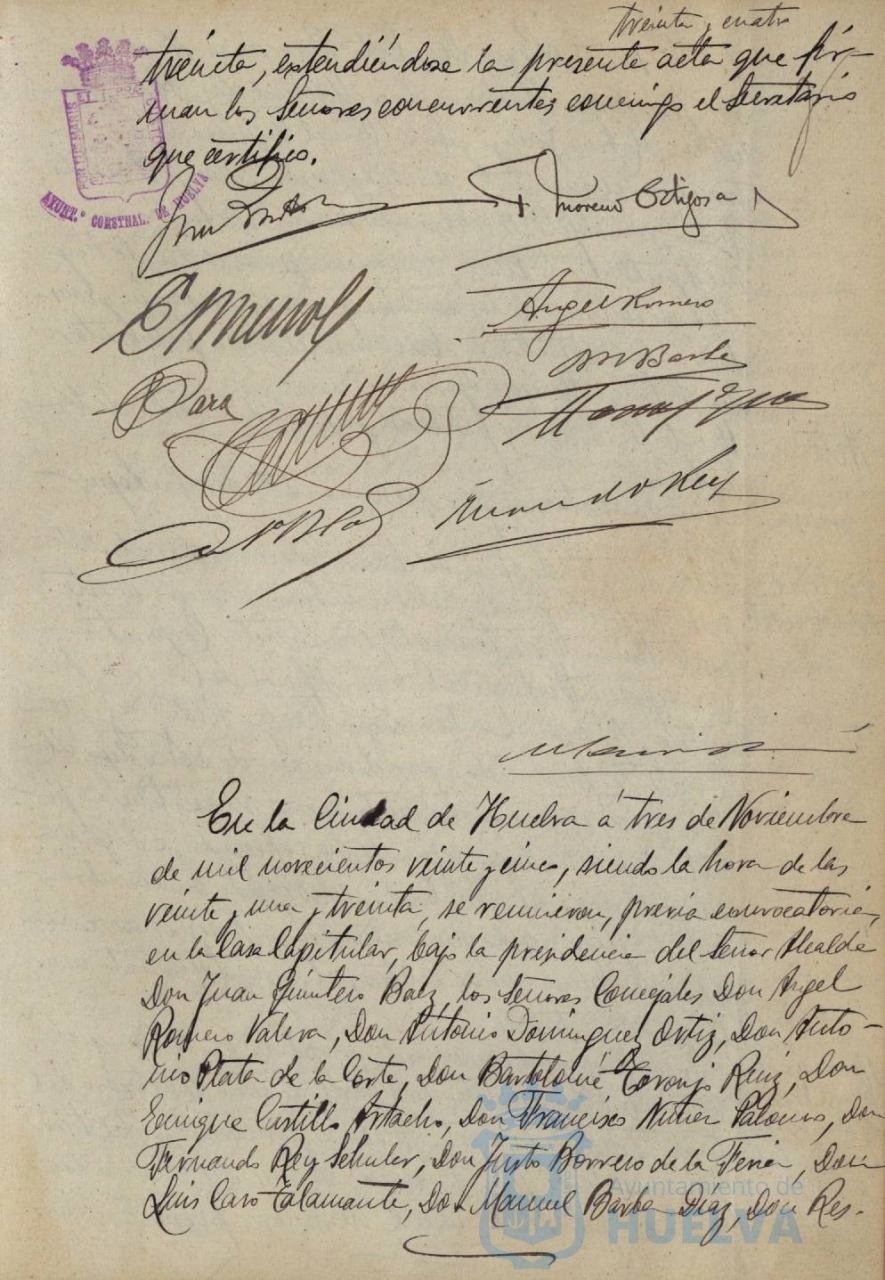 treinta y cuatro
treinta, extendiéndose la presente acta que fir-
man los Señores concurrentes conmigo el Secretario
que certifico.
AYUNT.º CONSTNAL. DE HUELVA
F. Moreno Ortigosa
Angel Romero
M Barba
Para
Fernando Rey
En la Ciudad de Huelva á tres de Noviembre
de mil novecientos veinte y cinco, siendo la hora de las
veinte y una y treinta, se reunieron, previa convocatoria,
en la Casa Capitular, bajo la presidencia del Señor Alcalde
Don Juan Quintero Baez, los Señores Concejales Don Angel
Romero Valera, Don Antonio Dominguez Ortiz, Don Anto-
nio Plata de la Corte, Don Bartolomé Toronjo Ruiz, Don
Enrique Castillo Artacho, Don Francisco Nuñez Palomo, Don
Fernando Rey Schuler, Don Justo Borrero de la Feria, Don
Luis Caro Talamante, Don Manuel Barba Diaz, Don Res-
Ayuntamiento de
HUELVA